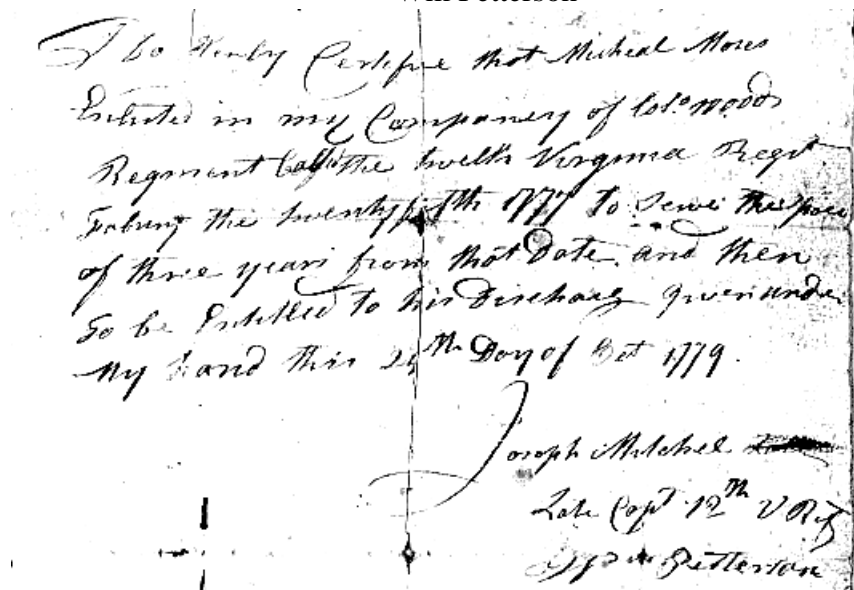 I do Hereby Certifie that Micheal Mores
Enlisted in my Company of Colo. Woods
Regment the twelth Virginia Regt.
the twentyfifth 1777 to Serve the
of three years from that Date and then
To be Entitled to his Discharg given under
My hand this 24th Day of Oct 1779.
Joseph Mitchel
Late Capt 12th V Regt
Wm Petterson